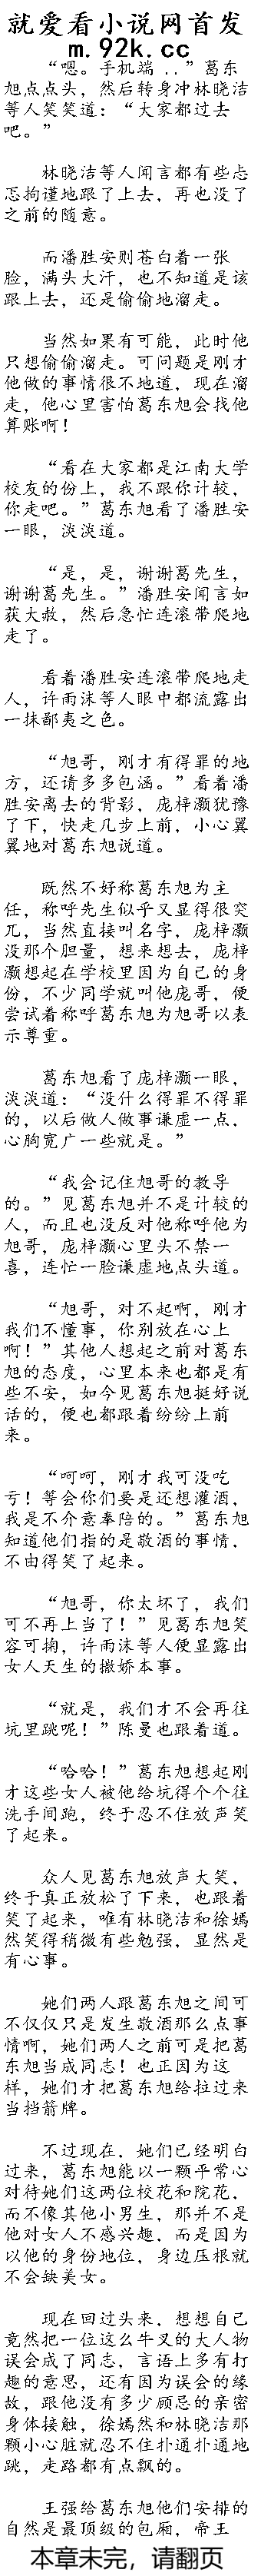 就爱看小说网首发
m.92k.cc
“嗯。手机端 ..”葛东
旭点点头，然后转身冲林晓洁
等人笑笑道：“大家都过去
吧。”
林晓洁等人闻言都有些忐
忑拘谨地跟了上去，再也没了
之前的随意。
而潘胜安则苍白着一张
脸，满头大汗，也不知道是该
跟上去，还是偷偷地溜走。
当然如果有可能，此时他
只想偷偷溜走。可问题是刚才
他做的事情很不地道，现在溜
走，他心里害怕葛东旭会找他
算账啊！
“看在大家都是江南大学
校友的份上，我不跟你计较，
你走吧。”葛东旭看了潘胜安
一眼，淡淡道。
“是，是，谢谢葛先生，
谢谢葛先生。”潘胜安闻言如
获大赦，然后急忙连滚带爬地
走了。
看着潘胜安连滚带爬地走
人，许雨沫等人眼中都流露出
一抹鄙夷之色。
“旭哥，刚才有得罪的地
方，还请多多包涵。”看着潘
胜安离去的背影，庞梓灏犹豫
了下，快走几步上前，小心翼
翼地对葛东旭说道。
既然不好称葛东旭为主
任，称呼先生似乎又显得很突
兀，当然直接叫名字，庞梓灏
没那个胆量，想来想去，庞梓
灏想起在学校里因为自己的身
份，不少同学就叫他庞哥，便
尝试着称呼葛东旭为旭哥以表
示尊重。
葛东旭看了庞梓灏一眼，
淡淡道：“没什么得罪不得罪
的，以后做人做事谦虚一点，
心胸宽广一些就是。”
“我会记住旭哥的教导
的。”见葛东旭并不是计较的
人，而且也没反对他称呼他为
旭哥，庞梓灏心里头不禁一
喜，连忙一脸谦虚地点头道。
“旭哥，对不起啊，刚才
我们不懂事，你别放在心上
啊！”其他人想起之前对葛东
旭的态度，心里本来也都是有
些不安，如今见葛东旭挺好说
话的，便也都跟着纷纷上前
来。
“呵呵，刚才我可没吃
亏！等会你们要是还想灌酒，
我是不介意奉陪的。”葛东旭
知道他们指的是敬酒的事情，
不由得笑了起来。
“旭哥，你太坏了，我们
可不再上当了！”见葛东旭笑
容可掬，许雨沫等人便显露出
女人天生的撒娇本事。
“就是，我们才不会再往
坑里跳呢！”陈曼也跟着道。
“哈哈！”葛东旭想起刚
才这些女人被他给坑得个个往
洗手间跑，终于忍不住放声笑
了起来。
众人见葛东旭放声大笑，
终于真正放松了下来，也跟着
笑了起来，唯有林晓洁和徐嫣
然笑得稍微有些勉强，显然是
有心事。
她们两人跟葛东旭之间可
不仅仅只是发生敬酒那么点事
情啊，她们两人之前可是把葛
东旭当成同志！也正因为这
样，她们才把葛东旭给拉过来
当挡箭牌。
不过现在，她们已经明白
过来，葛东旭能以一颗平常心
对待她们这两位校花和院花，
而不像其他小男生，那并不是
他对女人不感兴趣，而是因为
以他的身份地位，身边压根就
不会缺美女。
现在回过头来，想想自己
竟然把一位这么牛叉的大人物
误会成了同志，言语上多有打
趣的意思，还有因为误会的缘
故，跟他没有多少顾忌的亲密
身体接触，徐嫣然和林晓洁那
颗小心脏就忍不住扑通扑通地
跳，走路都有点飘的。
王强给葛东旭他们安排的
自然是最顶级的包厢，帝王
本章未完，请翻页